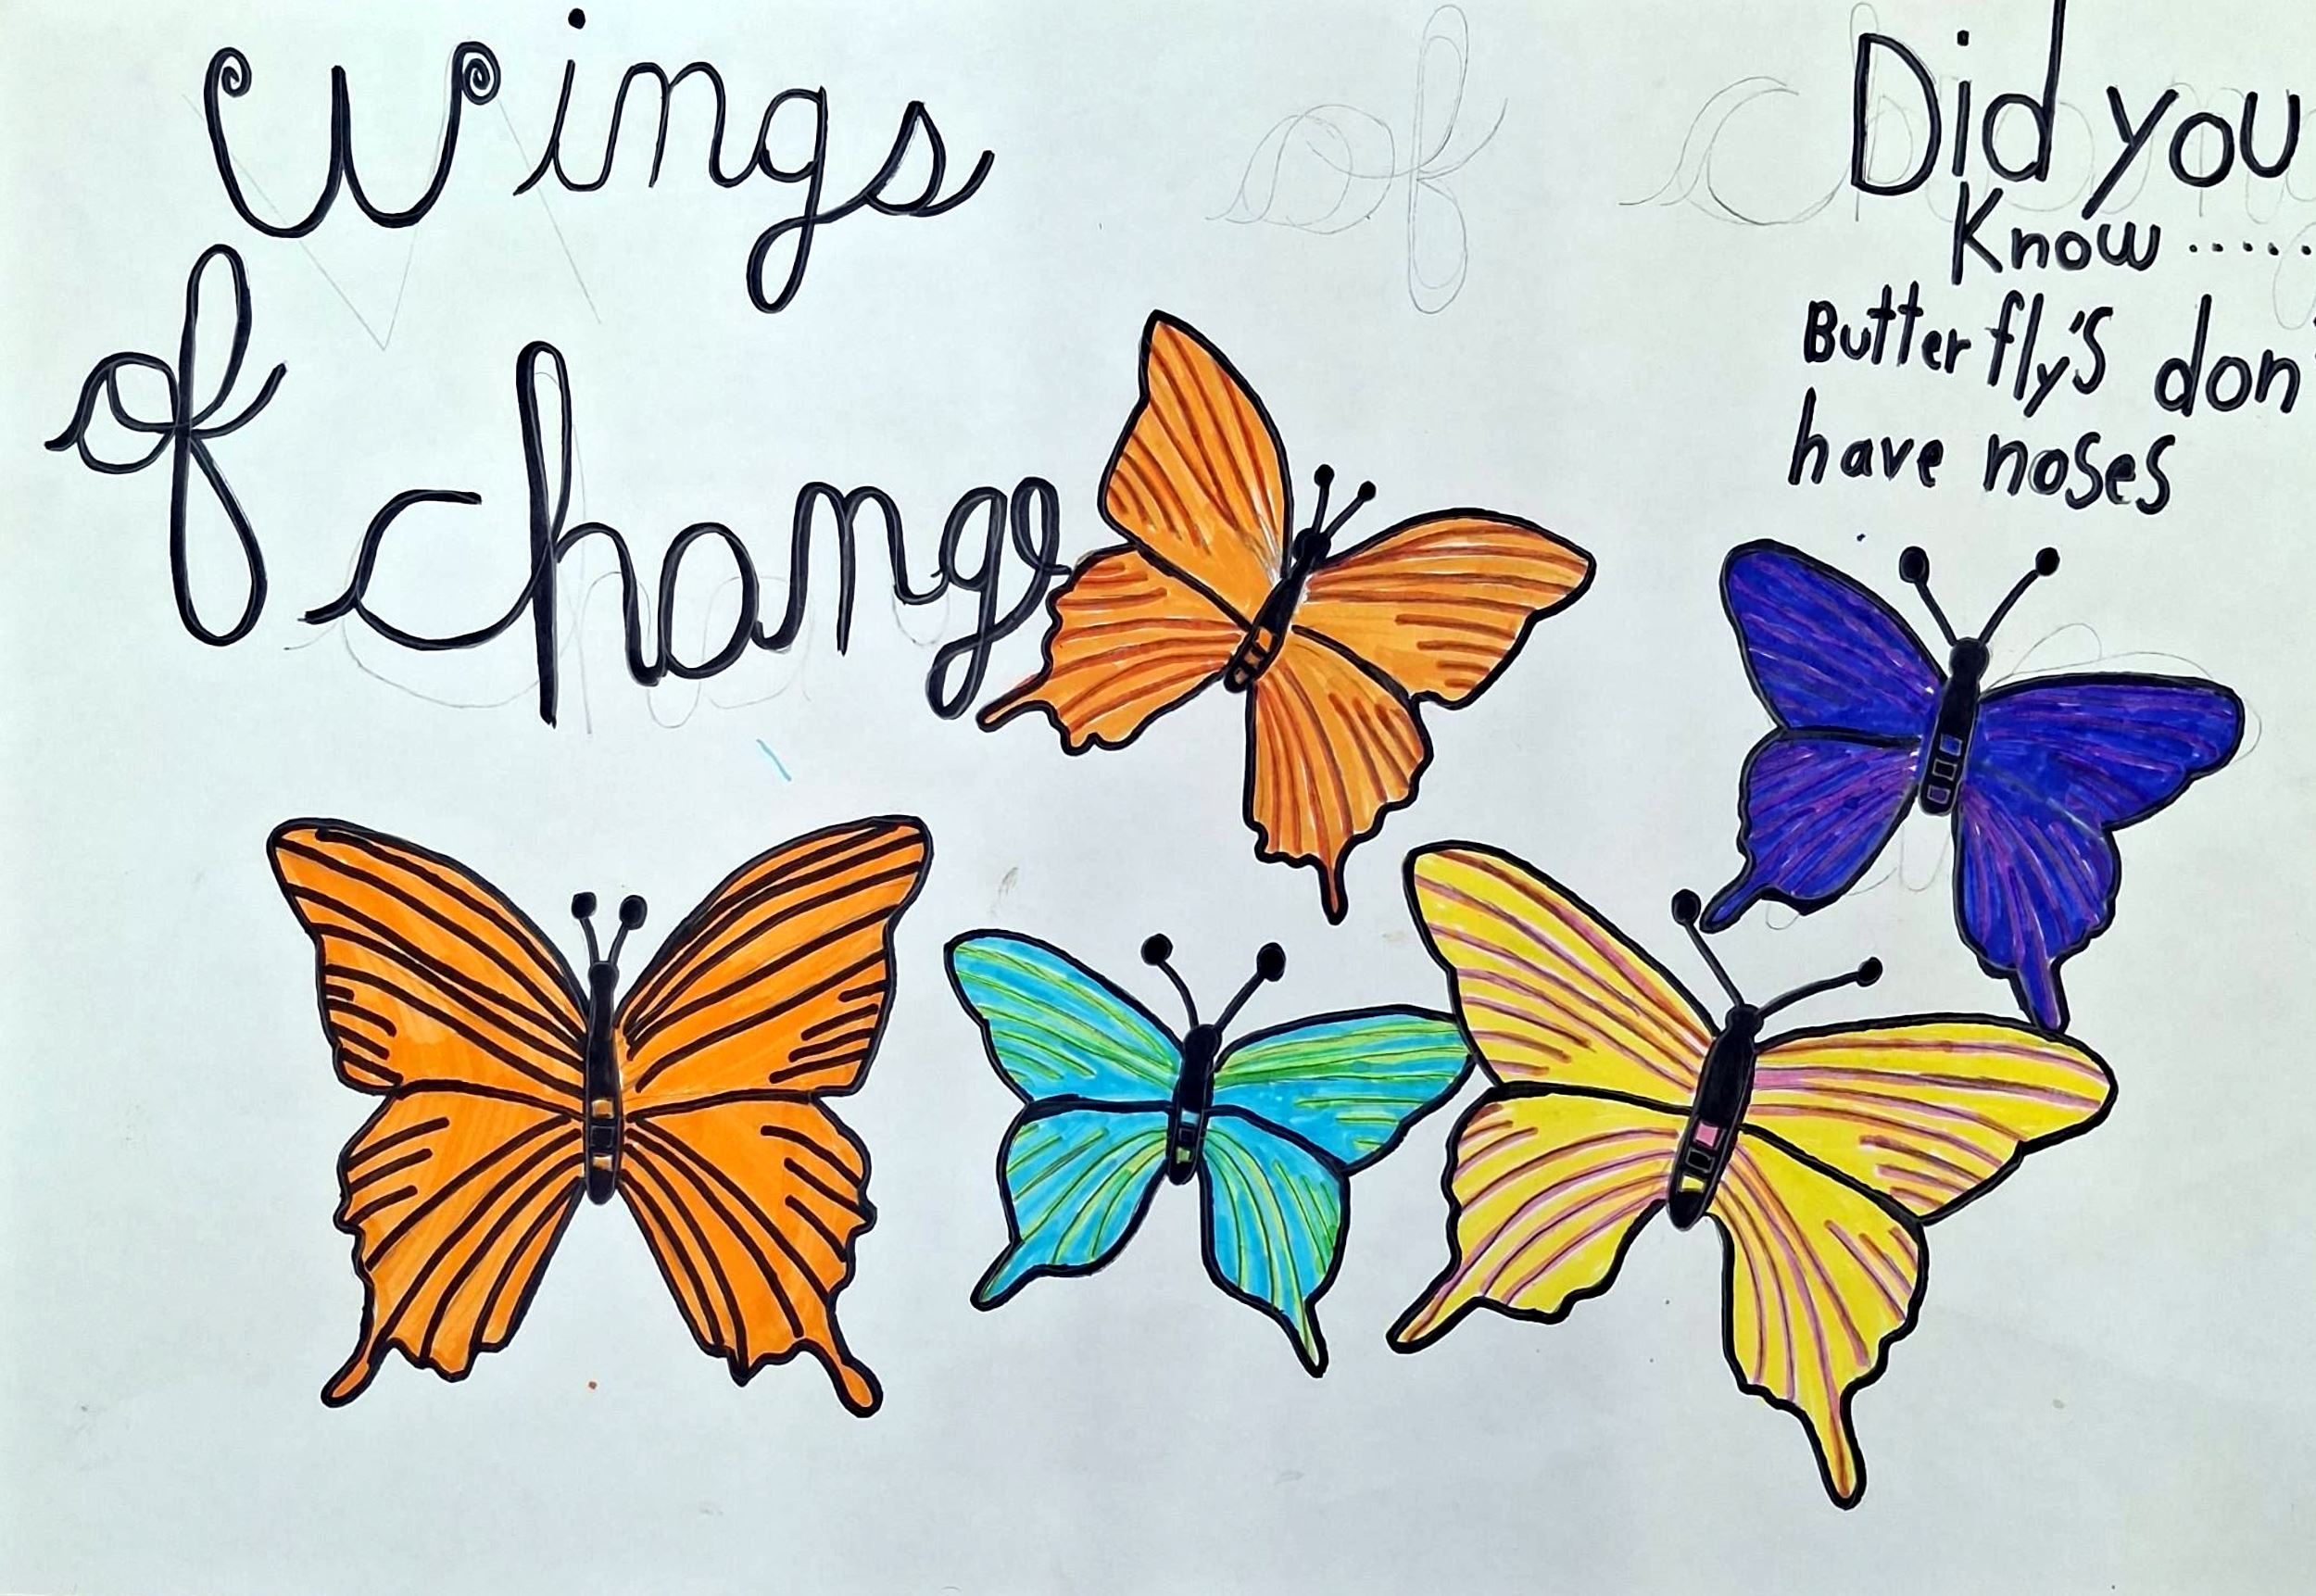 Wings
of
change
Did you
Know ......
Butterfly's don'
have noses